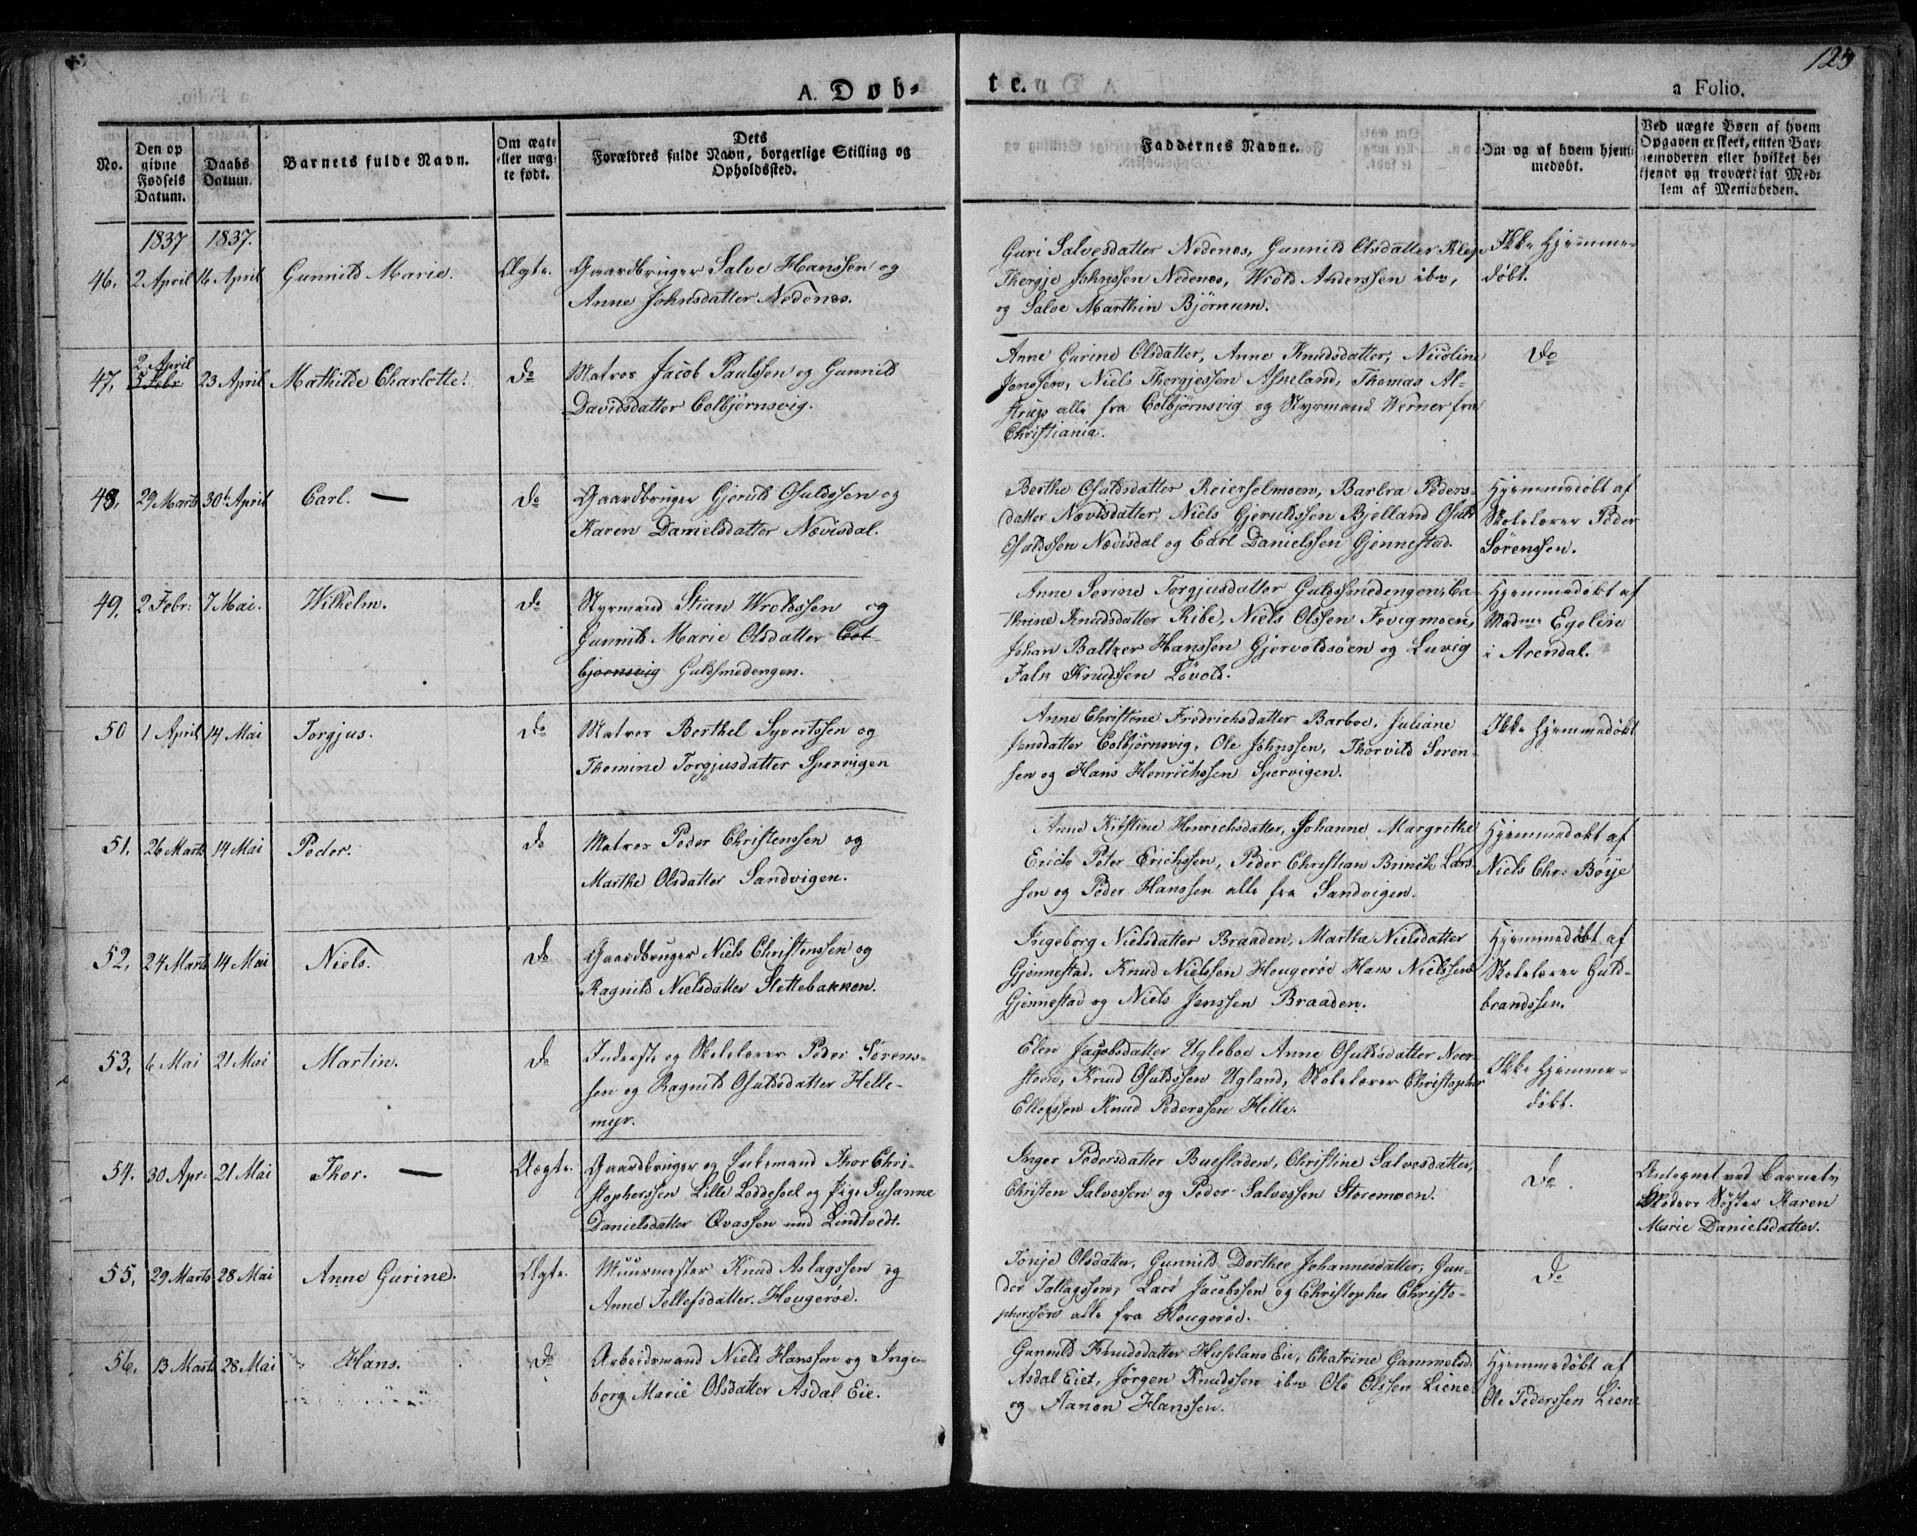 125
A. Døb-
te.
a Folio.
No.
Den op
givne
Fødsels
Datum.
Daabs
Datum.
Barnets fulde Navn.
Om ægte
eller uæg-
te født.
Dets
Forældres fulde Navn, borgerlige Stilling og
Opholdssted.
Faddernes Navne.
Om og af hvem hjem-
medøbt.
Ved uægte Børn af hvem
Opgaven er skeet, enten Bar-
nemoderen eller hvilket be-
kjendt og troværdigt Med-
lem af Menigheden.
1837 1837.
46. 2 April 16 April Gunnild Marie. Ægte. Gaardbruger Salve Hanssen og
Anne Johnsdatter Nedenes.
Guri Salvesdatter Nedenes, Gunnild Olsdatter
Thergje Johnssen Nedenes, Wrold Anderssen ibm,
og Salve Marthin Bjørnum.
Ikke Hjemme-
døbt.
2. April
47. 5 Febr. 23 April Mathilde Charlotte. Do Matros Jacob Paulssen og Gunnild
Davidsdatter Colbjørnsvig.
Anne Gurine Olsdatter, Anne Knudsdatter, Nicoline
Jenssen, Niels Thergjessen Askeland, Thomas Al-
strup alle fra Colbjørnsvig og Styrmand Werner fra
Christiania.
Do
48. 29 Marts 30te April Carl. — Do Gaardbruger Gjeruld Osuldssen og
Karen Danielsdatter Nævisdal.
Berthe Osuldsdatter Reierselmoen, Barbra Peders-
datter Nævisdatter, Niels Gjeruldssen Bjelland Osuld
Osuldssen Nævisdal og Carl Danielssen Gjennestad.
Hjemmedøbt af
Skolelærer Peder
Sørenssen.
49. 2 Febr: 7 Mai. Wilhelm. Do Styrmand Stian Wroldssen og
Gunnild Marie Olsdatter Col-
bjørnsvig Guldsmedengen.
Anne Serine Torgjusdatter Guldsmedengen, Ca-
thrine Knudsdatter Ribe, Niels Olssen Fevigmoen,
Johan Baltzer Hanssen Gjervoldsøen og Luvig
Falk Knudssen Løvold.
Hjemmedøbt af
Madme Egeline
i Arendal.
50 1 April 14 Mai Torgjus. Do Matros Berthel Syvertssen og
Thomine Torgjusdatter Spervigen
Anne Christene Fredrichsdatter Barboe, Juliane
Jensdatter Colbjørnsvig, Ole Johnssen, Thorvild Søren-
sen og Hans Henrichssen Spervigen.
Ikke Hjemmedøbt
51. 26 Marts 14 Mai Peder. Do Matros Peder Christenssen og
Marthe Olsdatter Sandvigen.
Anne Kirstine Henrichsdatter, Johanne Margrethe
Erichs Peter Erichssen, Peder Christian Bunch Lars-
sen og Peder Hanssen alle fra Sandvigen.
Hjemmedøbt af
Niels Chr: Bøije
52. 24 Marts 14 Mai Niels. Do Gaardbruger Niels Christenssen og
Ragnild Nielsdatter Slettebakken.
Ingeborg Nielsdatter Braaden, Marthe Nielsdatter
Gjennestad. Knud Nielssen Hougerøe Hans Nielssen
Gjennestad og Niels Jenssen Braaden.
Hjemmedøbt af
Skolelærer Guld-
brandssen.
53. 6 Mai 21 Mai Martin. Do Inderste og Skolelærer Peder Sørens-
sen og Ragnild Osuldsdatter Helle-
myr.
Elen Jacobsdatter Ugleboe Anne Osuldsdatter Neer-
steen, Knud Osuldssen Ugland, Skolelærer Christopher
Ellefssen Knud Pederssen Helle.
Ikke Hjemme-
døbt.
54. 30 Apr: 21 Mai Thor. — Uægte. Gaardbruger og Enkemand Thor Chri-
stopherssen Lille Løddesøel og Pige Susanne
Danielsdatter Qvassen ved Lindtvedt.
Inger Pedersdatter Buesladen, Christine Salvesdatter,
Christen Salvessen og Peder Salvessen Storemoen.
Do.
Antegnet ved Barnets
Moders Søster Karen
Marie Danielsdatter.
55. 29 Marts 28 Mai Anne Gurine. Ægte. Muurmester Knud Aslagssen og
Anne Tellefsdatter. Hougerøe.
Tonje Olsdatter, Gunnild Dorthea Johannesdatter, Gun-
der Tallagssen, Lars Jacobssen og Christopher Christo-
pherssen alle fra Hougerøe.
Do
56. 13 Marts 28 Mai Hans. Do Arbeidsmand Niels Hanssen og Inge-
borg Marie Olsdatter Asdal Eie.
Gunuld Knudsdatter Huseland Eie, Chatrine Gammelsd:
Asdal Eiet, Jørgen Knudssen ibm Ole Olssen Liene
og Aanon Hanssen.
Hjemmedøbt af
Ole Pederssen Liene